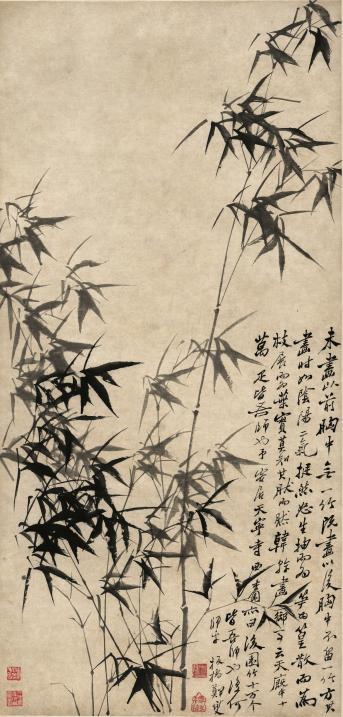 未畫以前胸中無一竹既畫以後胸中不留一竹方其
畫時如陰陽二氣挺然怒生抽而為筍為篁散而為
枝展而為葉實莫知其然而然韓幹畫御馬云天廄中十
萬匹皆吾師也予客居天寧寺西杏園亦曰後園竹十萬个
皆吾師也復何
師乎板橋鄭燮